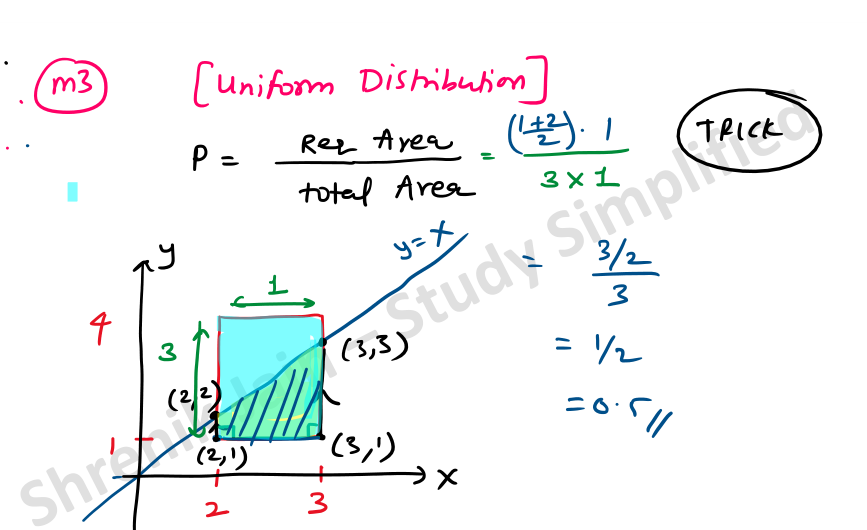 m3 [Uniform Distribution]
TRICK
P = Req Area / total Area = (1+2/2) · 1 / 3 × 1
= 3/2 / 3
= 1/2
= 0.5 //
y
y = x
1
4
3
(3,3)
(2,2)
1
(2,1)
(3,1)
x
2
3
Shrenik Jain - Study Simplified